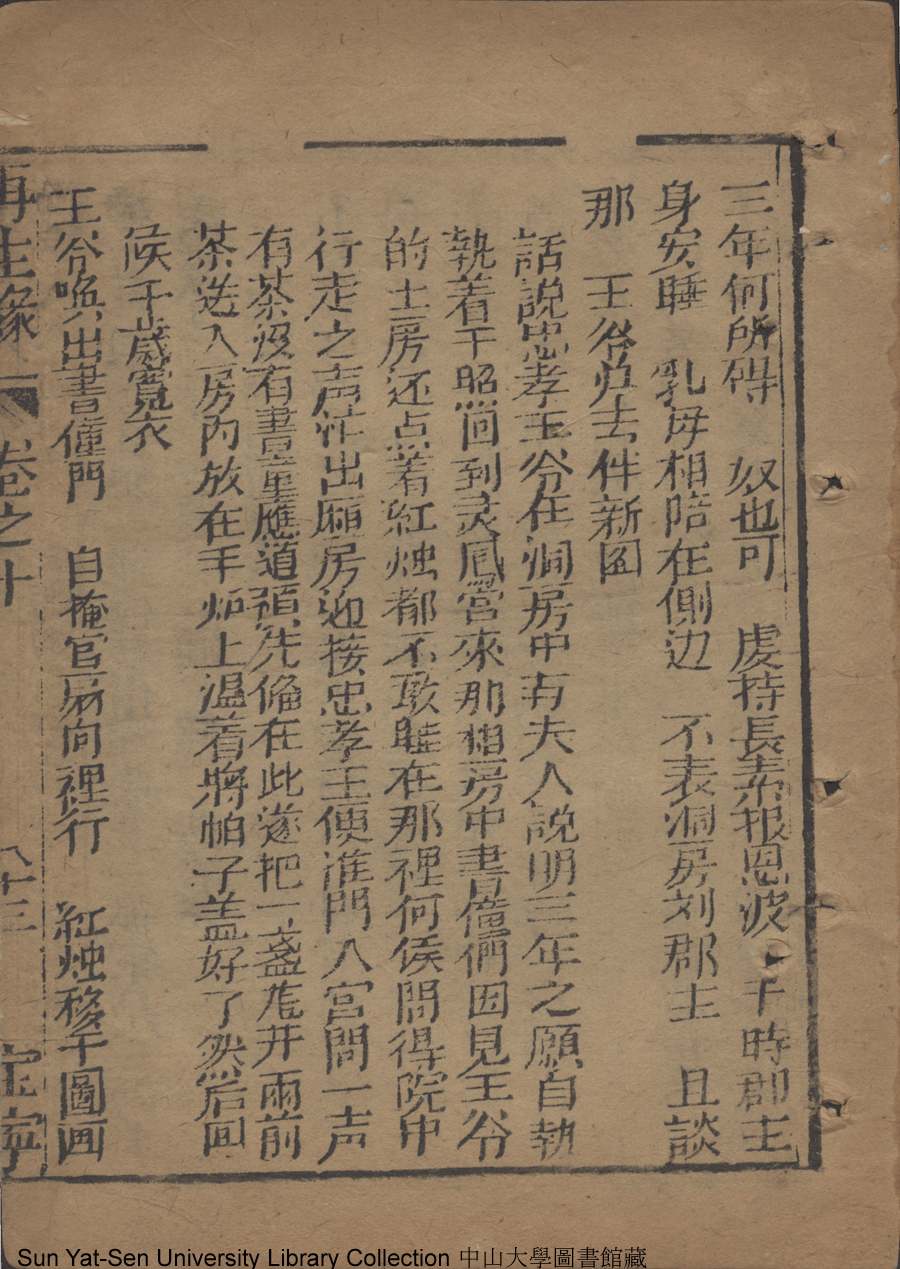 三年何所碍 奴也可 虔持長素报恩波 于時郡主
身安睡 乳母相陪在側边 不表洞房刘郡主 且談
那 王爷竝去伴新圖
話說忠孝王爷在洞房中有夫人說明三年之願自執
執着手照啇到灵凤宮來那廂房中書僮們因見王爷
的土房还点着紅烛都不敢睡在那裡伺侯聞得院中
行走之声忙出厢房迎接忠孝王便進門入宮問一声
有茶沒有書童應道預先俻在此遂把一盞龙井雨前
茶送入房內放在手炉上温着將帕子盖好了然后回
候千歲寬衣
王爷喚出書僮門 自掩宮扇向裡行 紅烛移于圖画
再生緣 卷之十 八十三 宝寧
Sun Yat-Sen University Library Collection 中山大學圖書館藏